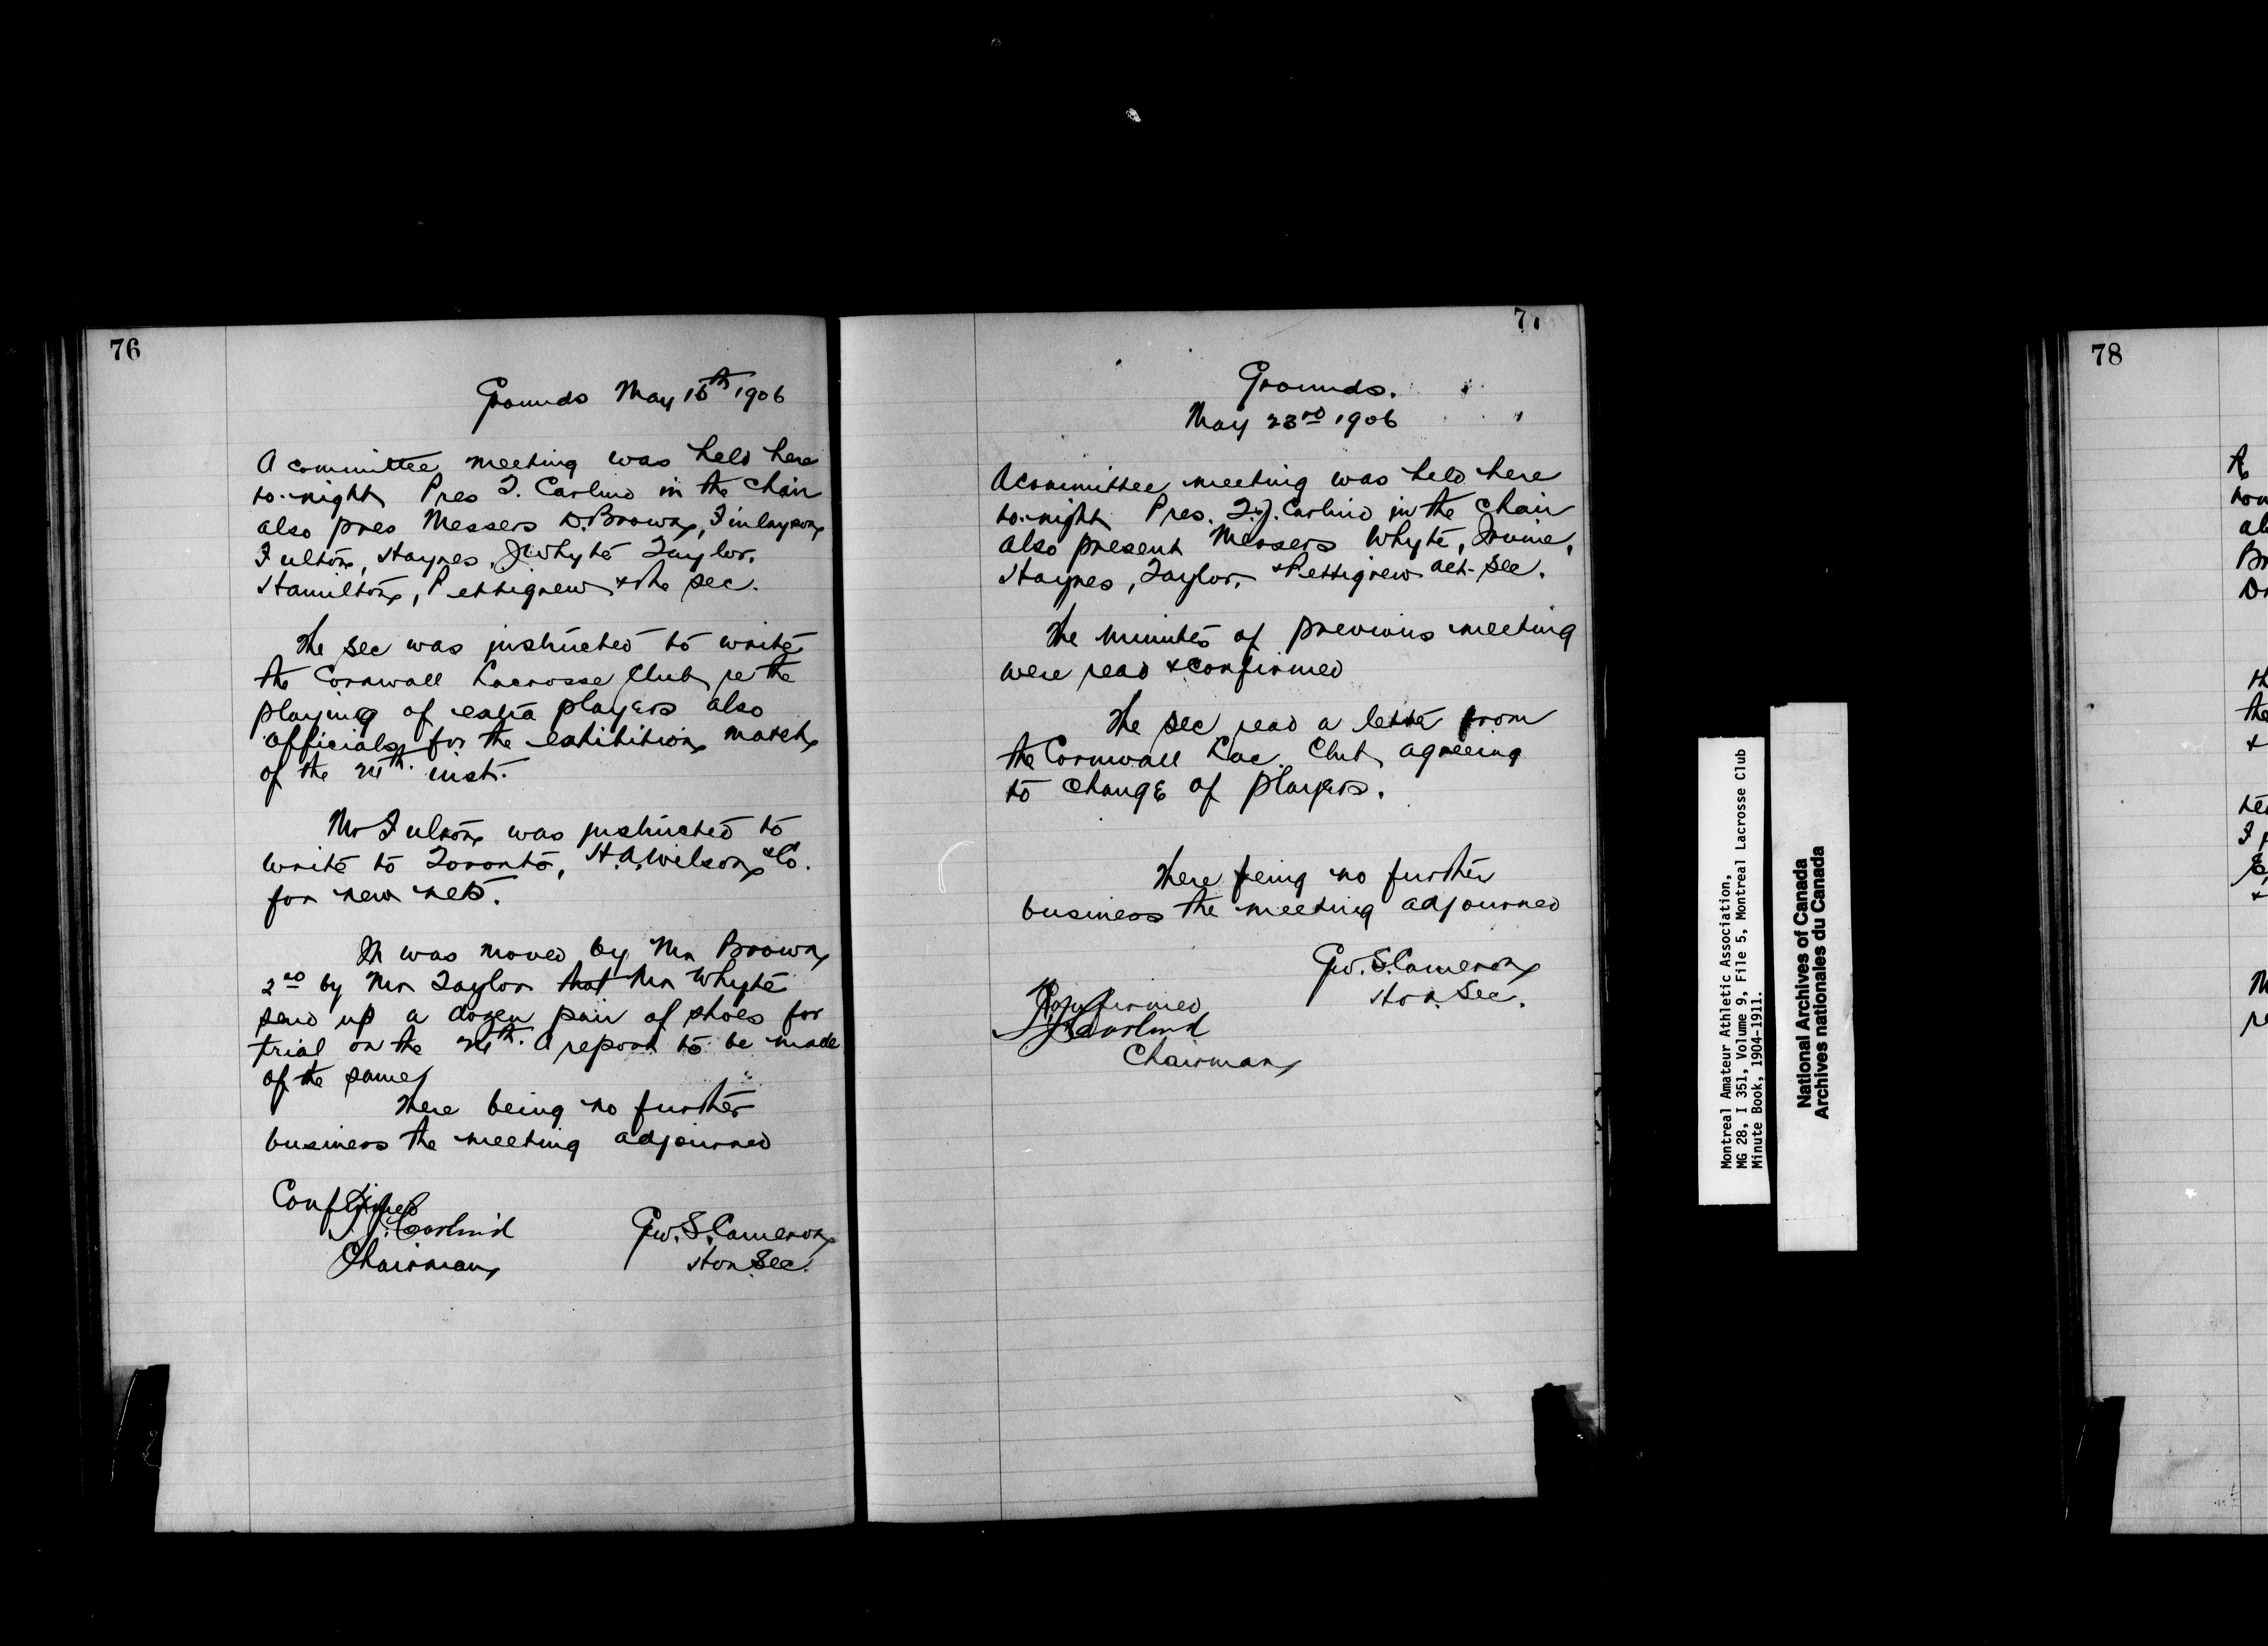 76
Grounds May 15th 1906
A committee meeting was held here
to-night Pres T. Carlind in the Chair
also pres Messers D. Brown, Finlayson,
Fulton, Haynes, J Whyte Taylor,
Hamilton, Pettigrew & the sec.
The sec was instructed to write
the Cornwall Lacrosse Club re the
playing of extra players also
officials for the exhibition match
of the 24th inst.
Mr Fulton was instructed to
write to Toronto, H.A. Wilson & Co.
for new nets.
It was moved by Mr Brown
2nd by Mr Taylor that Mr Whyte
send up a dozen pair of shoes for
trial on the 24th. A report to be made
of the same
There being no further
business the meeting adjourned
Confirmed
T.J. Carlind
Chairman
Geo. S. Cameron
Hon Sec.
7
Grounds.
May 23rd 1906
A committee meeting was held here
to-night Pres. T.J. Carlind in the Chair
also present Messers Whyte, Irvine,
Haynes, Taylor, & Pettigrew act- sec.
The minutes of previous meeting
were read & confirmed
The sec read a letter from
the Cornwall Lac. Club agreeing
to change of players.
There being no further
business the meeting adjourned
Geo. S. Cameron
Hon. Sec.
Confirmed
T J Carlind
Chairman
Montreal Amateur Athletic Association,
MG 28, I 351, Volume 9, File 5, Montreal Lacrosse Club
Minute Book, 1904-1911.
National Archives of Canada
Archives nationales du Canada
78